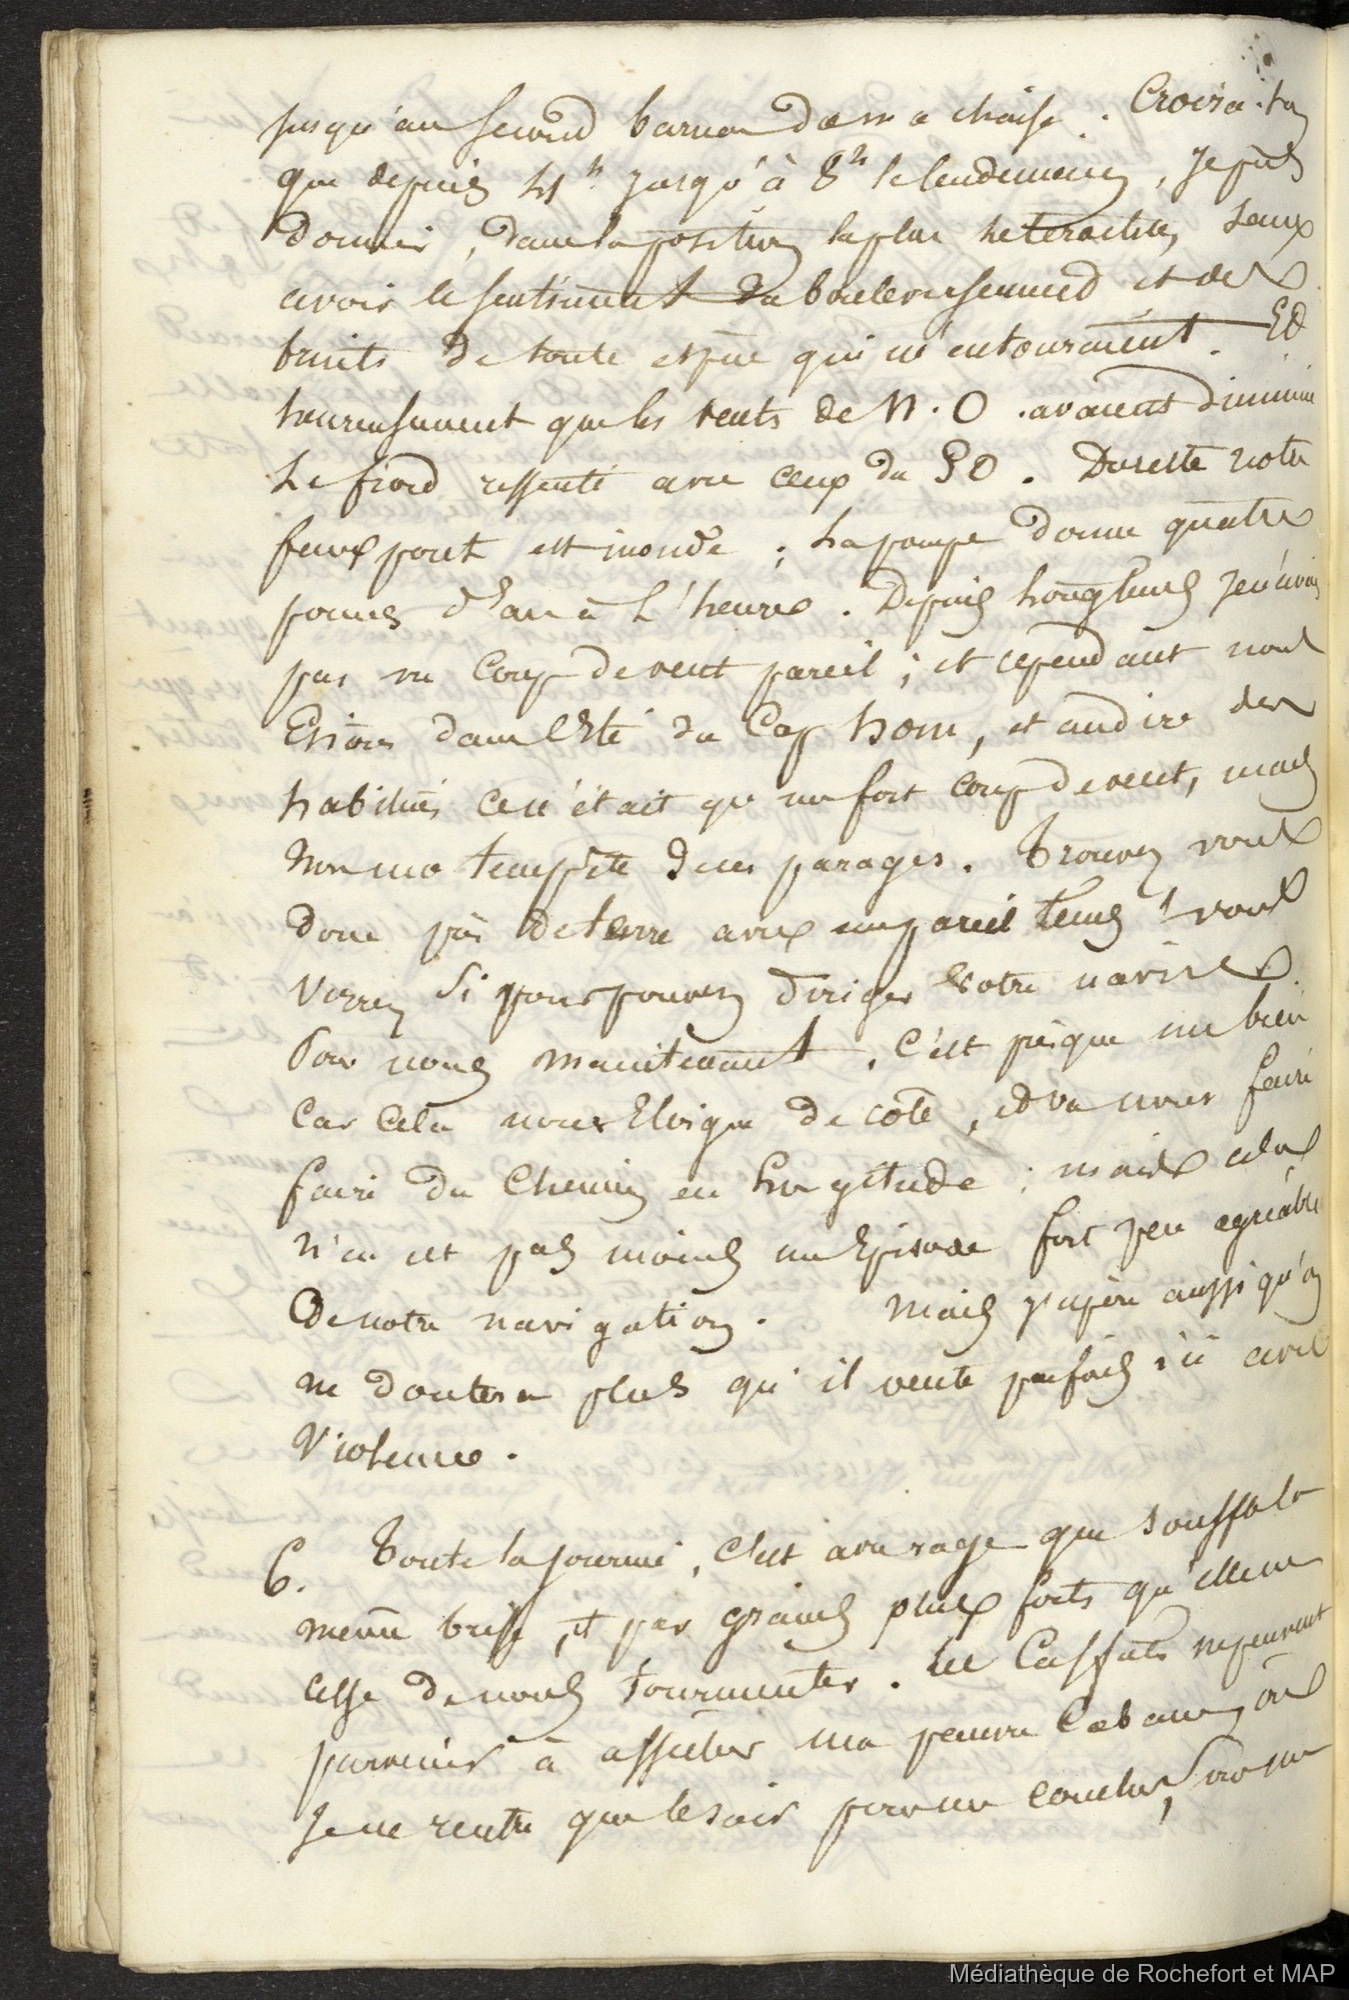 jusqu'au second barreau de ma chaise. Croira-t-on
que depuis 4h jusqu'à 8h le lendemain, je pus
dormir, dans la position la plus hétéroclite, sans
avoir le sentiment du bouleversement et des
bruits de toute espèce qui m'entouraient. Et
heureusement que les vents de N.O. avaient diminué
le froid ressenti avec ceux du SO. Du reste notre
faux pont est inondé ; la pompe donne quatre
pouces d'eau à l'heure. Depuis je n'avais
pas vu coup de vent pareil ; et cependant nous
étions dans l'été du Cap horn, et au dire des
habitués ce n'était qu'un fort coup de vent, mais
non une tempête de ces parages. Trouvez vous
donc près de terre avec un pareil tems ! vous
verrez si vous pouvez diriger votre navire.
Pour nous maintenant, c'est presque un bien
car cela nous éloigne de côte, et va nous faire
faire du chemin en longitude ; mais cela
n'en est pas moins un épisode fort peu agréable
de notre navigation. Mais j'espère aussi qu'on
ne doutera plus qu'il vente parfois ici avec
violence.
6. Toute la journée, c'est avec rage que souffle la
même brise, et par grains plus forts qu'elle ne
cesse de nous tourmenter. Les calfats ne peuvent
parvenir à assécher ma pauvre cabane, où
je ne rentre que le soir pour me coucher,